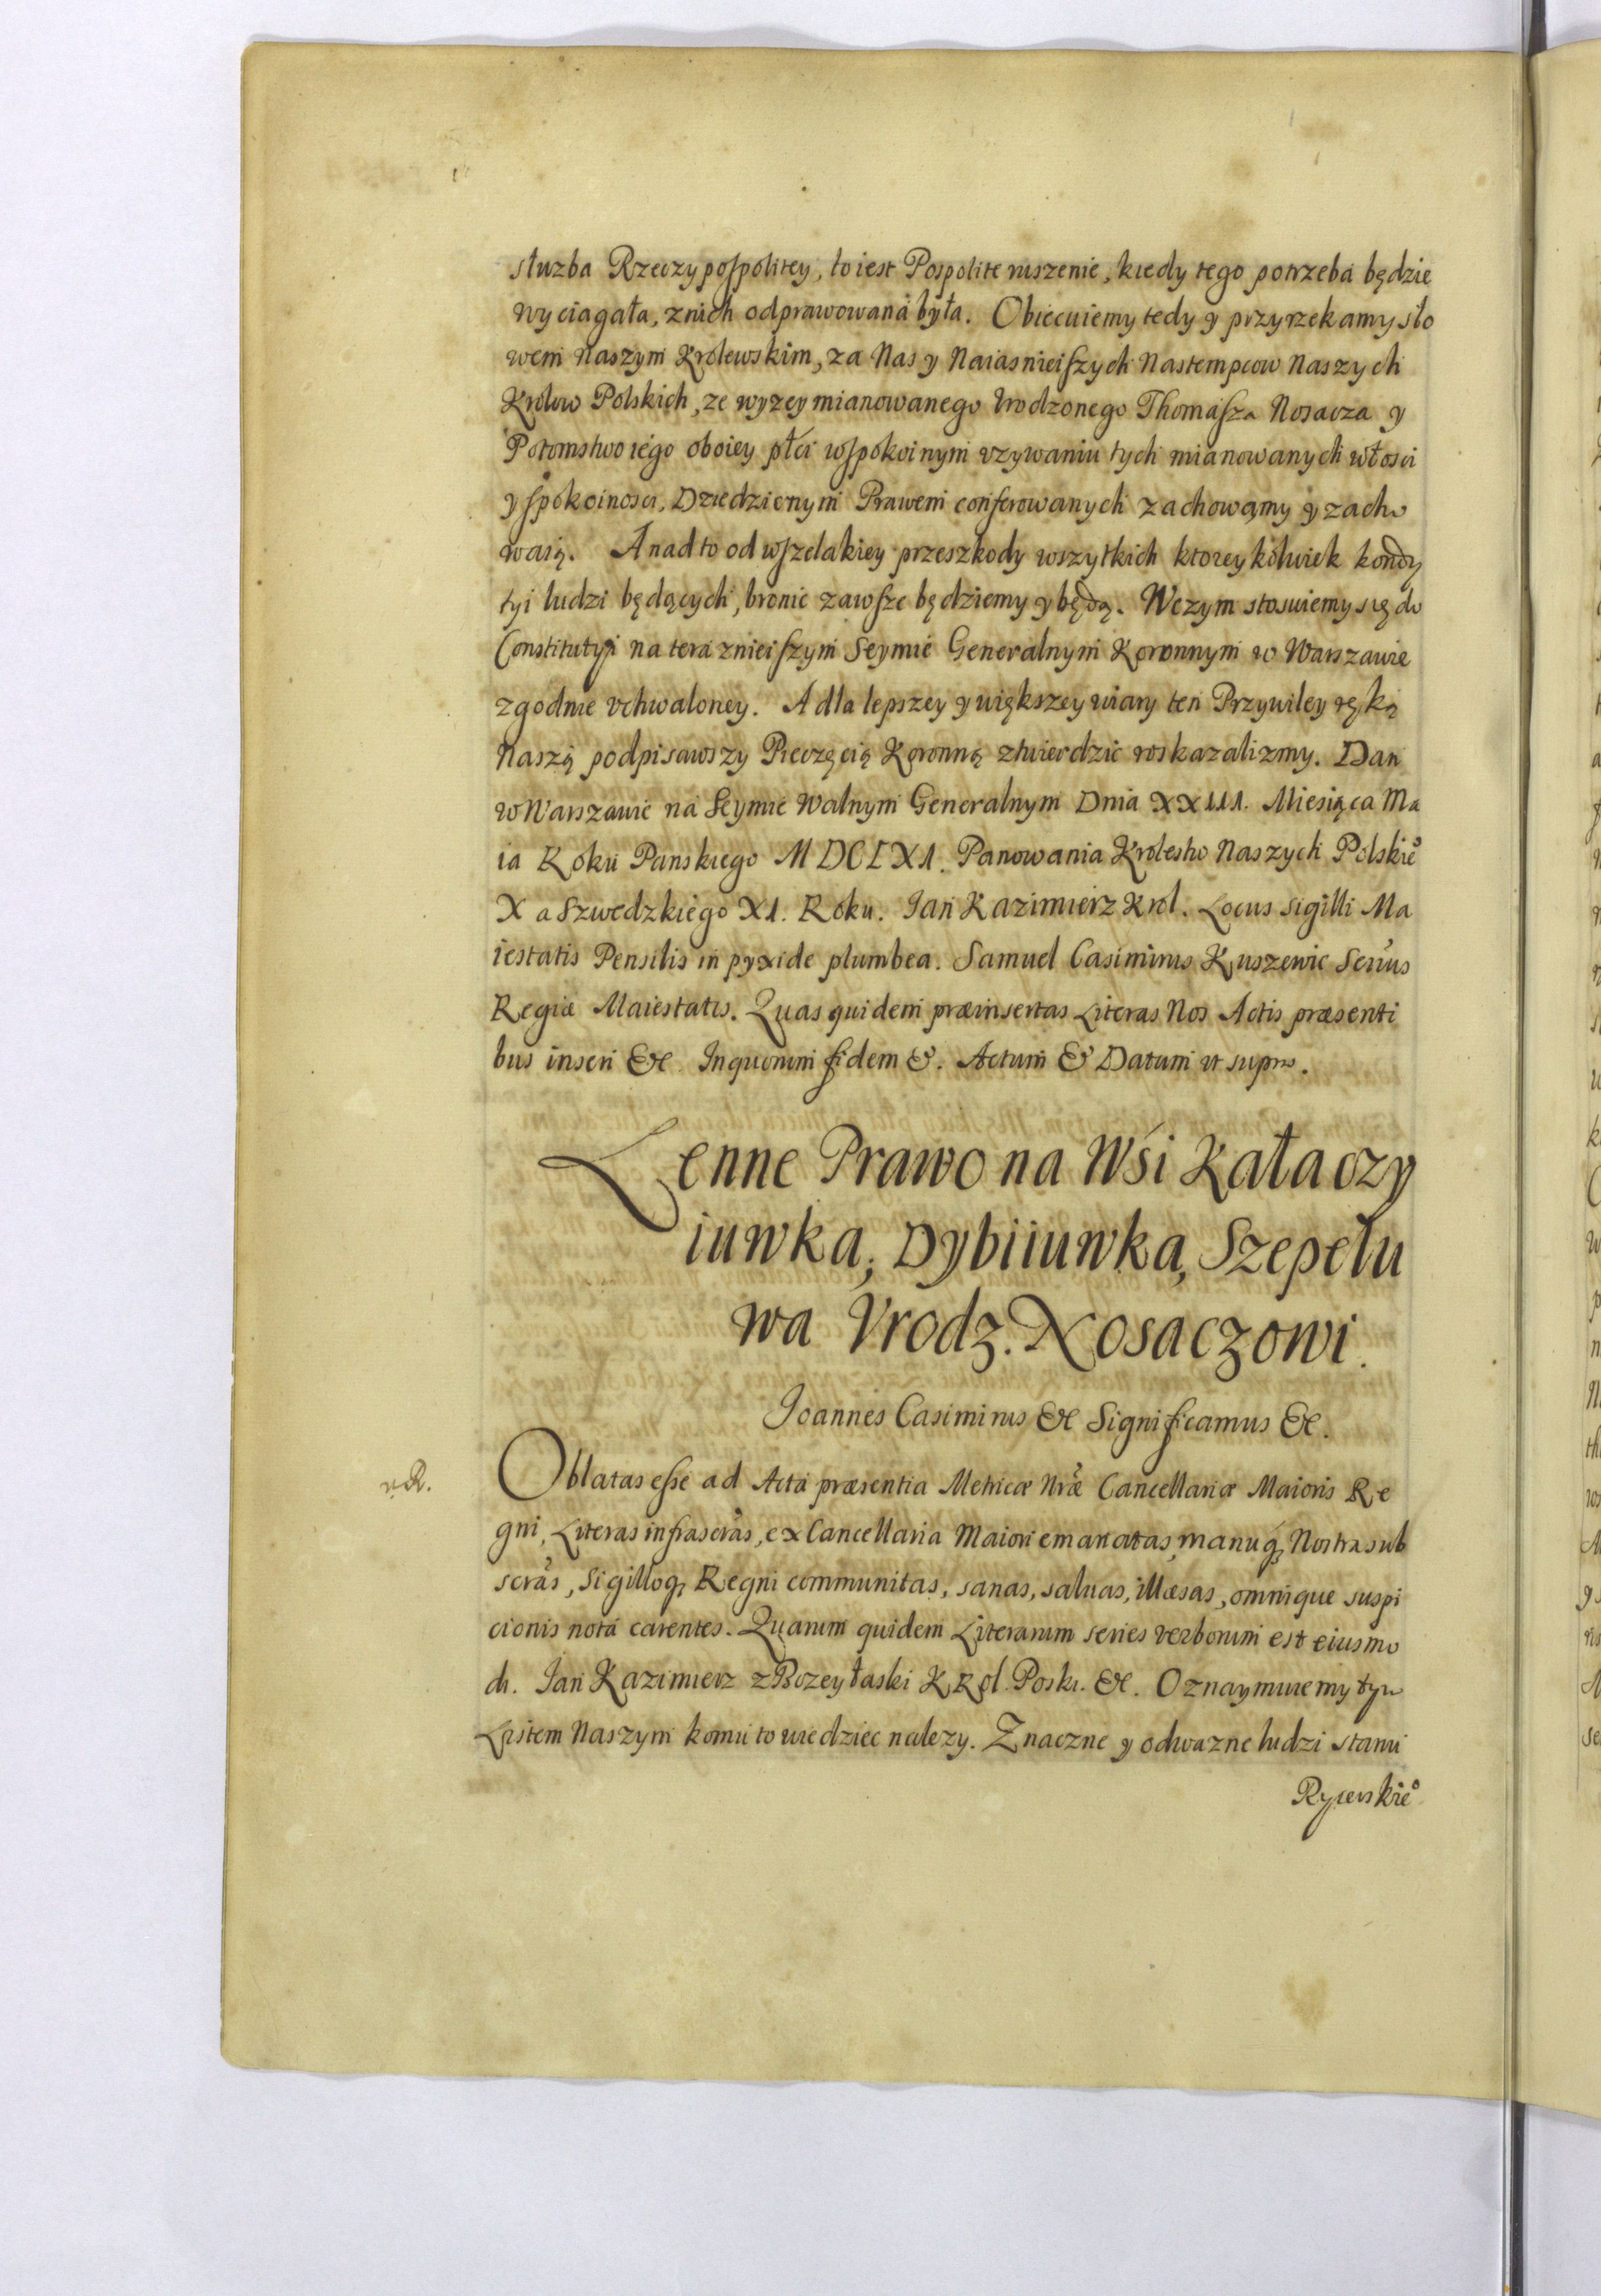 służba Rzeczypospolitey, to iest Pospolite ruszenie, kiedy tego potrzeba będzie
wyciagała, znich odprawowana była. Obiecuiemy tedy y przyrzekamy sło
wem naszym Krolewskim, za Nas y Naiasnieiszych Nastempcow Naszych
Krolow Polskich, ze wyzey mianowanego Urodzonego Thomasza Nosacza y
Potomstwo iego oboiey płci wspokoinym vzywaniu tych mianowanych włosci
y spokoinosci, Dziedzicznym Prawem conferowanych zachowamy y zacho
waią. A nad to od wszelakiey przeszkody wszytkich ktoreykolwiek kondy
tyi ludzi będących, bronic zawsze będziemy y będą. Wczym stosuiemy się do
Constitutyi na teraznieiszym Seymie Generalnym Koronnym w Warszawie
zgodnie vchwaloney. A dla lepszey y większey wiary ten Przywiley ręką
Naszą podpisawszy Pieczęcią Koronną ztwierdzic roskazalizmy. Dan
w Warszawie na Seymie Walnym Generalnym Dnia XXIII. Miesiąca Ma
ia Roku Panskiego MDCLXI. Panowania Krolestw Naszych Polskieo
X a Szwedzkiego XI. Roku. Jan Kazimierz Krol. Locus sigilli Ma
iestatis Pensilis in pyxide plumbea. Samuel Casimirus Kuszewic Secrius
Regiæ Maiestatis. Quas quidem præinsertas Literas Nos Actis præsenti
bus inseri &c. Inquorum fidem &. Actum & Datum ut supra.
Lenne Prawo na Wśi Kałaczy
iuwka, Dybiiuwka, Szepelu
wa Vrodz. Nosaczowi.
Joannes Casimirus &c Significamus &c.
Oblatas esse ad Acta præsentia Metricæ Nræ Cancellariæ Maioris Re
gni, Literas infrascras, ex Cancellaria Maiori emanatas, manuq, Nostra sub
scras, Sigilloq, Regni communitas, sanas, saluas, illæsas, omnique suspi
cionis nota carentes. Quarum quidem Literarum series verborum est eiusmo
di. Jan Kazimierz z Bozey łaski KRol Poski. &c. Oznaymuiemy tym
Listem Naszym komu to wiedziec nalezy. Znaczne y odwazne ludzi stanu
Rycerskieo